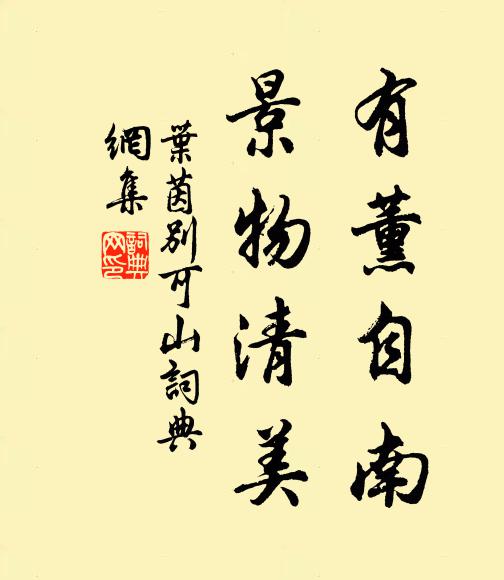 有薰自南
景物清美
葉茵別可山詞典
網集
詞典
网印